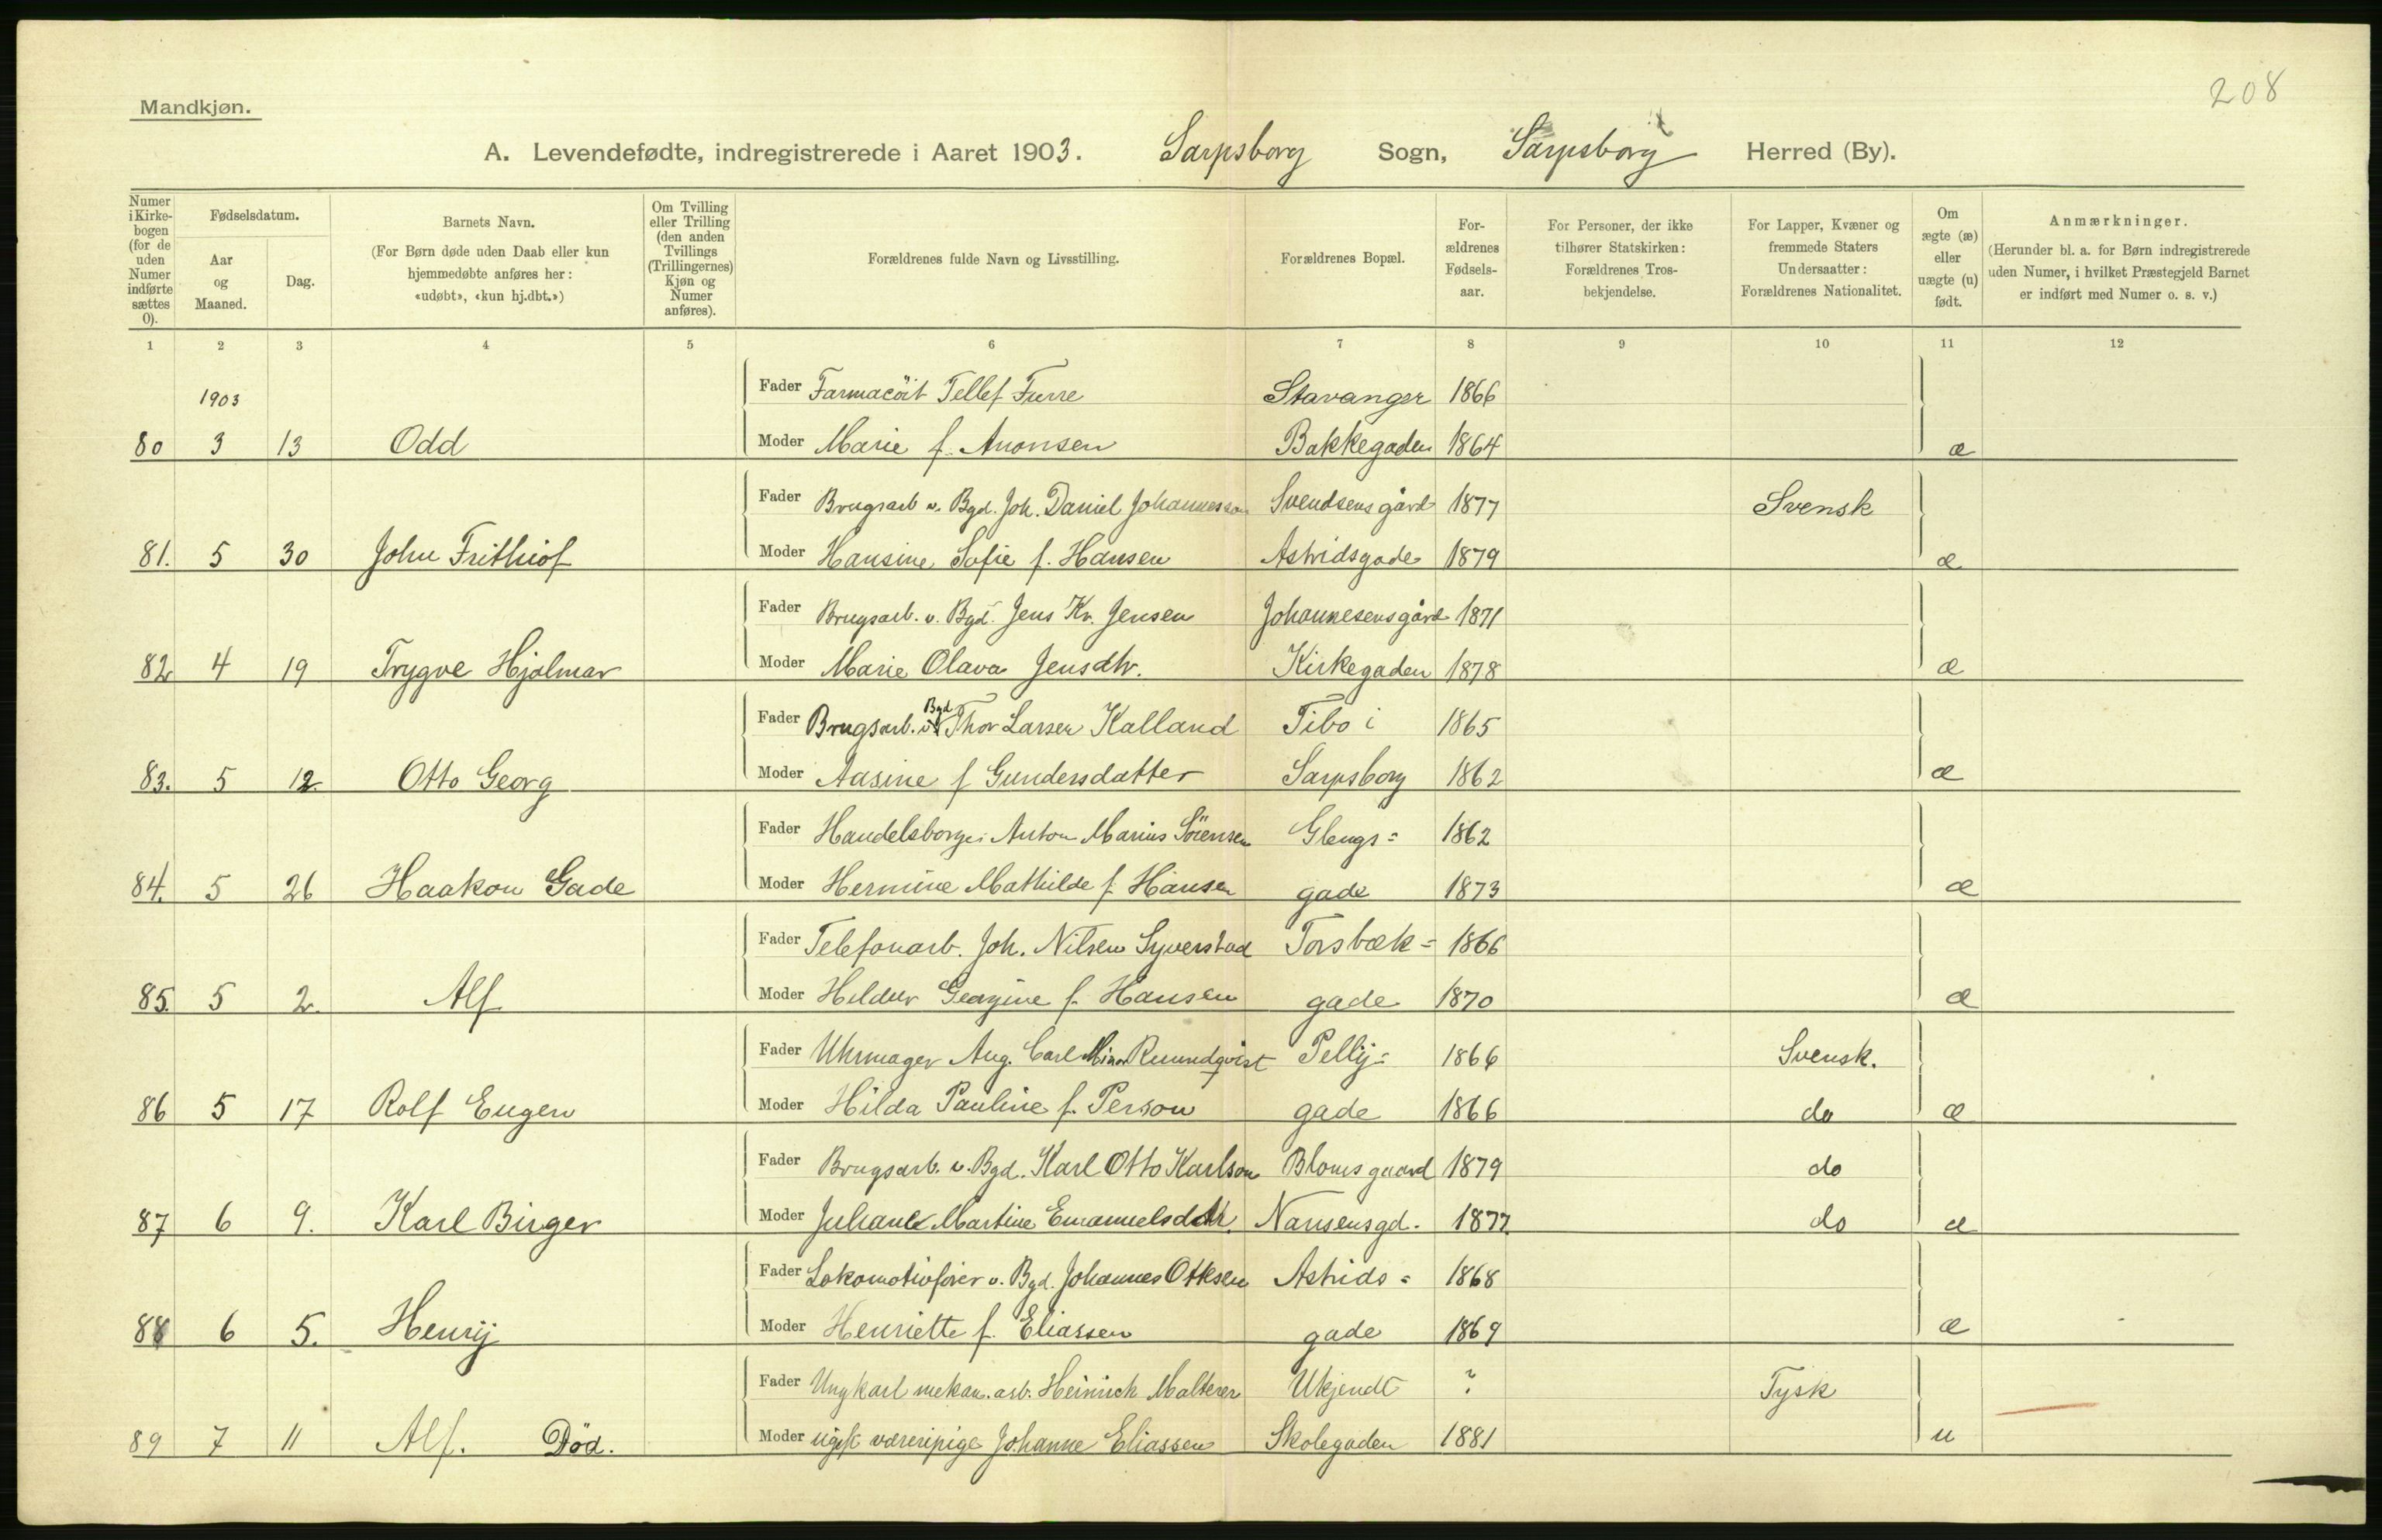 208
Mandkjøn.
A. Levendefødte, indregistrerede i Aaret 1903. Sarpsborg Sogn, Sarpsborg Herred (By).
Numer i Kirke-bogen (for de uden Numer indførte sættes 0).
Fødselsdatum.
Aar og Maaned.
Dag.
Barnets Navn.
(For Børn døde uden Daab eller kun hjemmedøbte anføres her: «udøbt», «kun hj.dbt.»)
Om Tvilling eller Trilling (den anden Tvillings (Trillingernes) Kjøn og Numer anføres).
Forældrenes fulde Navn og Livsstilling.
Forældrenes Bopæl.
For-ældrenes Fødsels-aar.
For Personer, der ikke tilhører Statskirken: Forældrenes Tros-bekjendelse.
For Lapper, Kvæner og fremmede Staters Undersaatter: Forældrenes Nationalitet.
Om ægte (æ) eller uægte (u) født.
Anmærkninger.
(Herunder bl. a. for Børn indregistrerede uden Numer, i hvilket Præstegjeld Barnet er indført med Numer o. s. v.)
1 2 3 4 5 6 7 8 9 10 11 12
1903 Fader Farmacöit Tellef Furre Stavanger 1866
80 3 13 Odd Moder Marie f. Aronsen Bakkegaden 1864 æ
Fader Brugsarb v. Bgd. Joh. Daniel Johannesson Svendsens gård 1877 Svensk
81. 5 30 John Frithiof Moder Hansine Sofie f. Hansen Astridsgade 1879 æ
Fader Brugsarb. v. Bgd. Jens Kr. Jensen Johannesensgård 1871
82 4 19 Trygve Hjalmar Moder Marie Olava Jensdtr. Kirkegaden 1878 æ
Fader Brugsarb. v. Bgd Thor Larsen Kalland Tibo i 1865
83. 5 12. Otto Georg Moder Aasine f Gundersdatter Sarpsborg 1862 æ
Fader Handelsborger Anton Marius Sörensen Glengs= 1862
84. 5 26 Haakon Gade Moder Hermine Mathilde f. Hansen gade 1873 æ
Fader Telefonarb. Joh. Nilsen Syverstad Torsbæk= 1866
85. 5 2. Alf Moder Hildur Georgine f. Hansen gade 1870 æ
Fader Uhrmager Aug. Carl Ruundqvist Pelly= 1866 Svensk.
86 5 17 Rolf Eugen Moder Hilda Pauline f. Person gade 1866 do æ
Fader Brugsarb. v. Bgd. Karl Otto Karlson Bloms gaard 1879 do
87 6 9. Karl Birger Moder Juliane Martine Emanuelsdttr. Nansensgd. 1877. do æ
Fader Lokomotivfører v. Bgd. Johannes Ottesen Astrids= 1868
88 6 5. Henrij Moder Henriette f. Eliassen gade 1869 æ
Fader Ungkarl mekan. arb. Heinrich Malterer Ukjendt ? Tysk
89 7 11 Alf. Död. Moder ugift Johanne Eliassen Skolegaden 1881 u